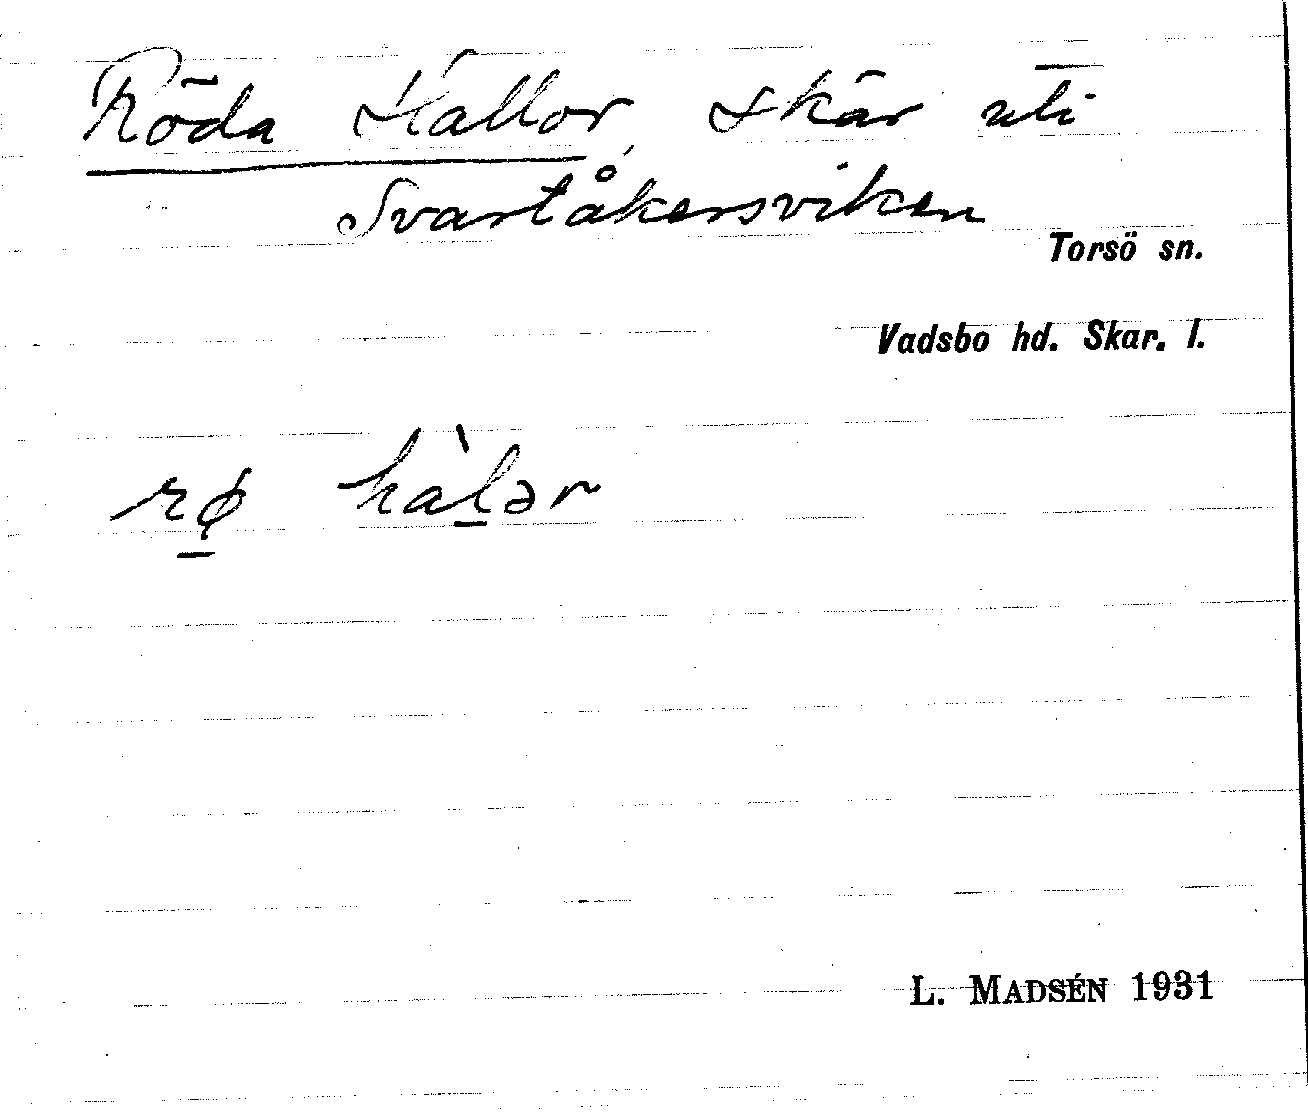 Röda Hallor skär uti
Svartåkersviken
Torsö sn.
Vadsbo hd. Skar. l.
rø̱ hàḻər
L. MADSÉN 1931